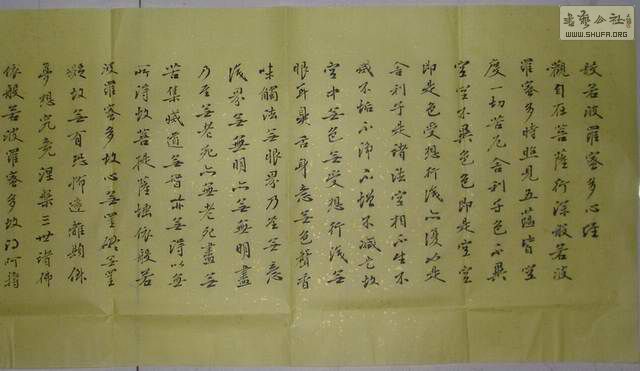 般若波羅蜜多心經
觀自在菩薩行深般若波
羅蜜多時照見五蘊皆空
度一切苦厄舍利子色不異
空空不異色色即是空空
即是色受想行識亦復如是
舍利子是諸法空相不生不
滅不垢不淨不增不減是故
空中無色無受想行識無
眼耳鼻舌身意無色聲香
味觸法無眼界乃至無意
識界無無明亦無無明盡
乃至無老死亦無老死盡無
苦集滅道無智亦無得以無
所得故菩提薩埵依般若
波羅蜜多故心無罣礙無罣
礙故無有恐怖遠離顛倒
夢想究竟涅槃三世諸佛
依般若波羅蜜多故得阿耨
書藝公社
WWW.SHUFA.ORG